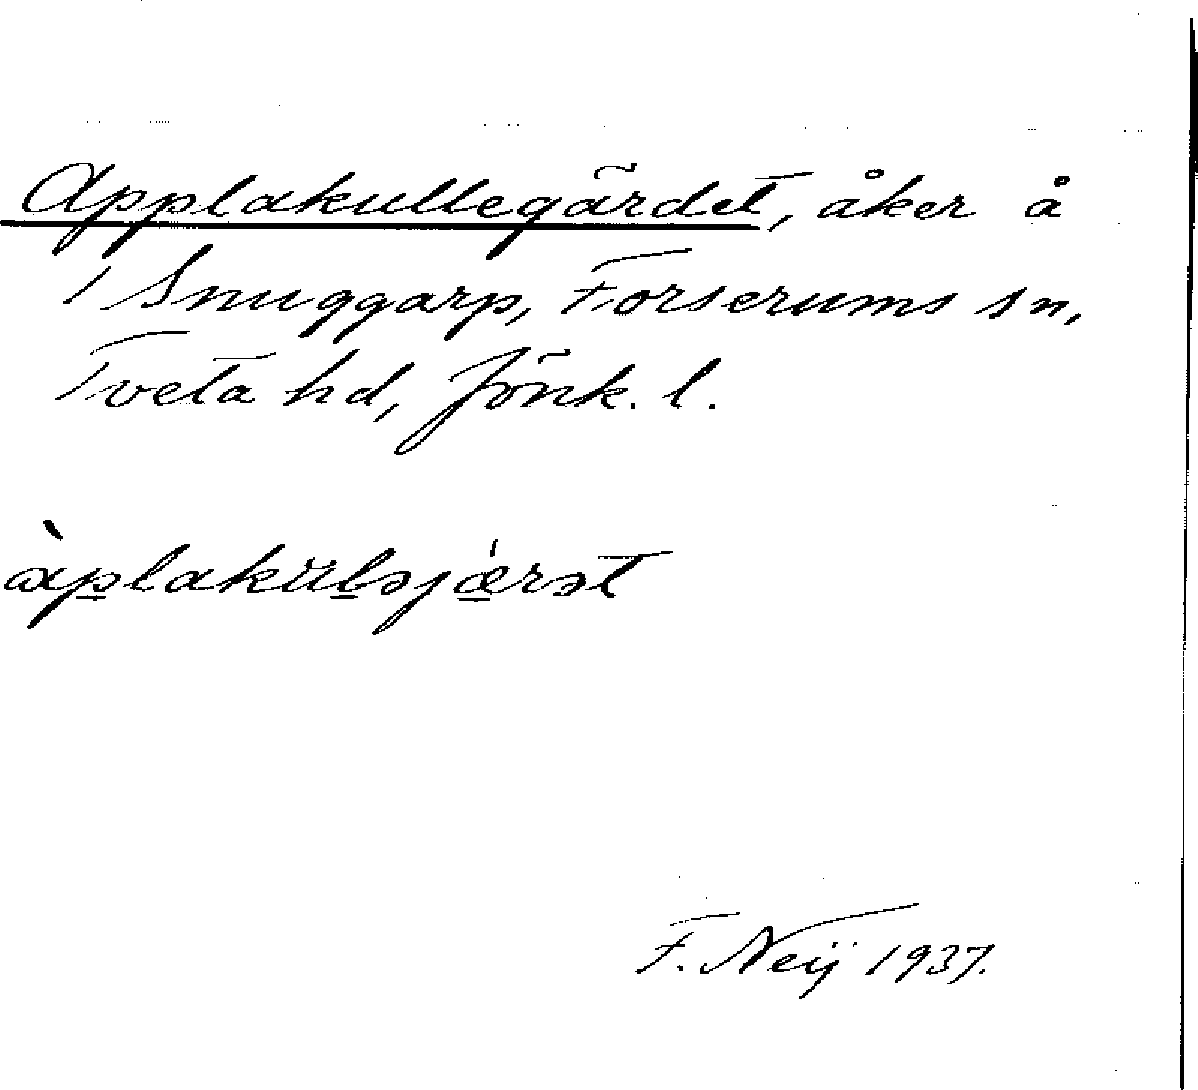 Applakullegärdet, åker å
1 Snuggarp, Forserums sn,
Tveta hd, Jönk. l.
àplakülǝjǽrǝt
F. Neij 1937.